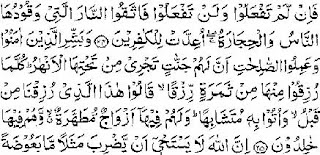 فَاِنْ لَّمْ تَفْعَلُوْا وَلَنْ تَفْعَلُوْا فَاتَّقُوا النَّارَ الَّتِيْ وَقُوْدُهَا
النَّاسُ وَالْحِجَارَةُ ۖ اُعِدَّتْ لِلْكٰفِرِيْنَ ﴿٢٤﴾ وَبَشِّرِ الَّذِيْنَ اٰمَنُوْا
وَعَمِلُوا الصّٰلِحٰتِ اَنَّ لَهُمْ جَنّٰتٍ تَجْرِيْ مِنْ تَحْتِهَا الْاَنْهٰرُ ؕ كُلَّمَا
رُزِقُوْا مِنْهَا مِنْ ثَمَرَةٍ رِّزْقًا ۙ قَالُوْا هٰذَا الَّذِيْ رُزِقْنَا مِنْ
قَبْلُ ۙ وَاُتُوْا بِهٖ مُتَشَابِهًا ؕ وَلَهُمْ فِيْهَآ اَزْوَاجٌ مُّطَهَّرَةٌ ۙ وَّهُمْ فِيْهَا
خٰلِدُوْنَ ﴿٢٥﴾ اِنَّ اللّٰهَ لَا يَسْتَحْيٖٓ اَنْ يَّضْرِبَ مَثَلًا مَّا بَعُوْضَةً